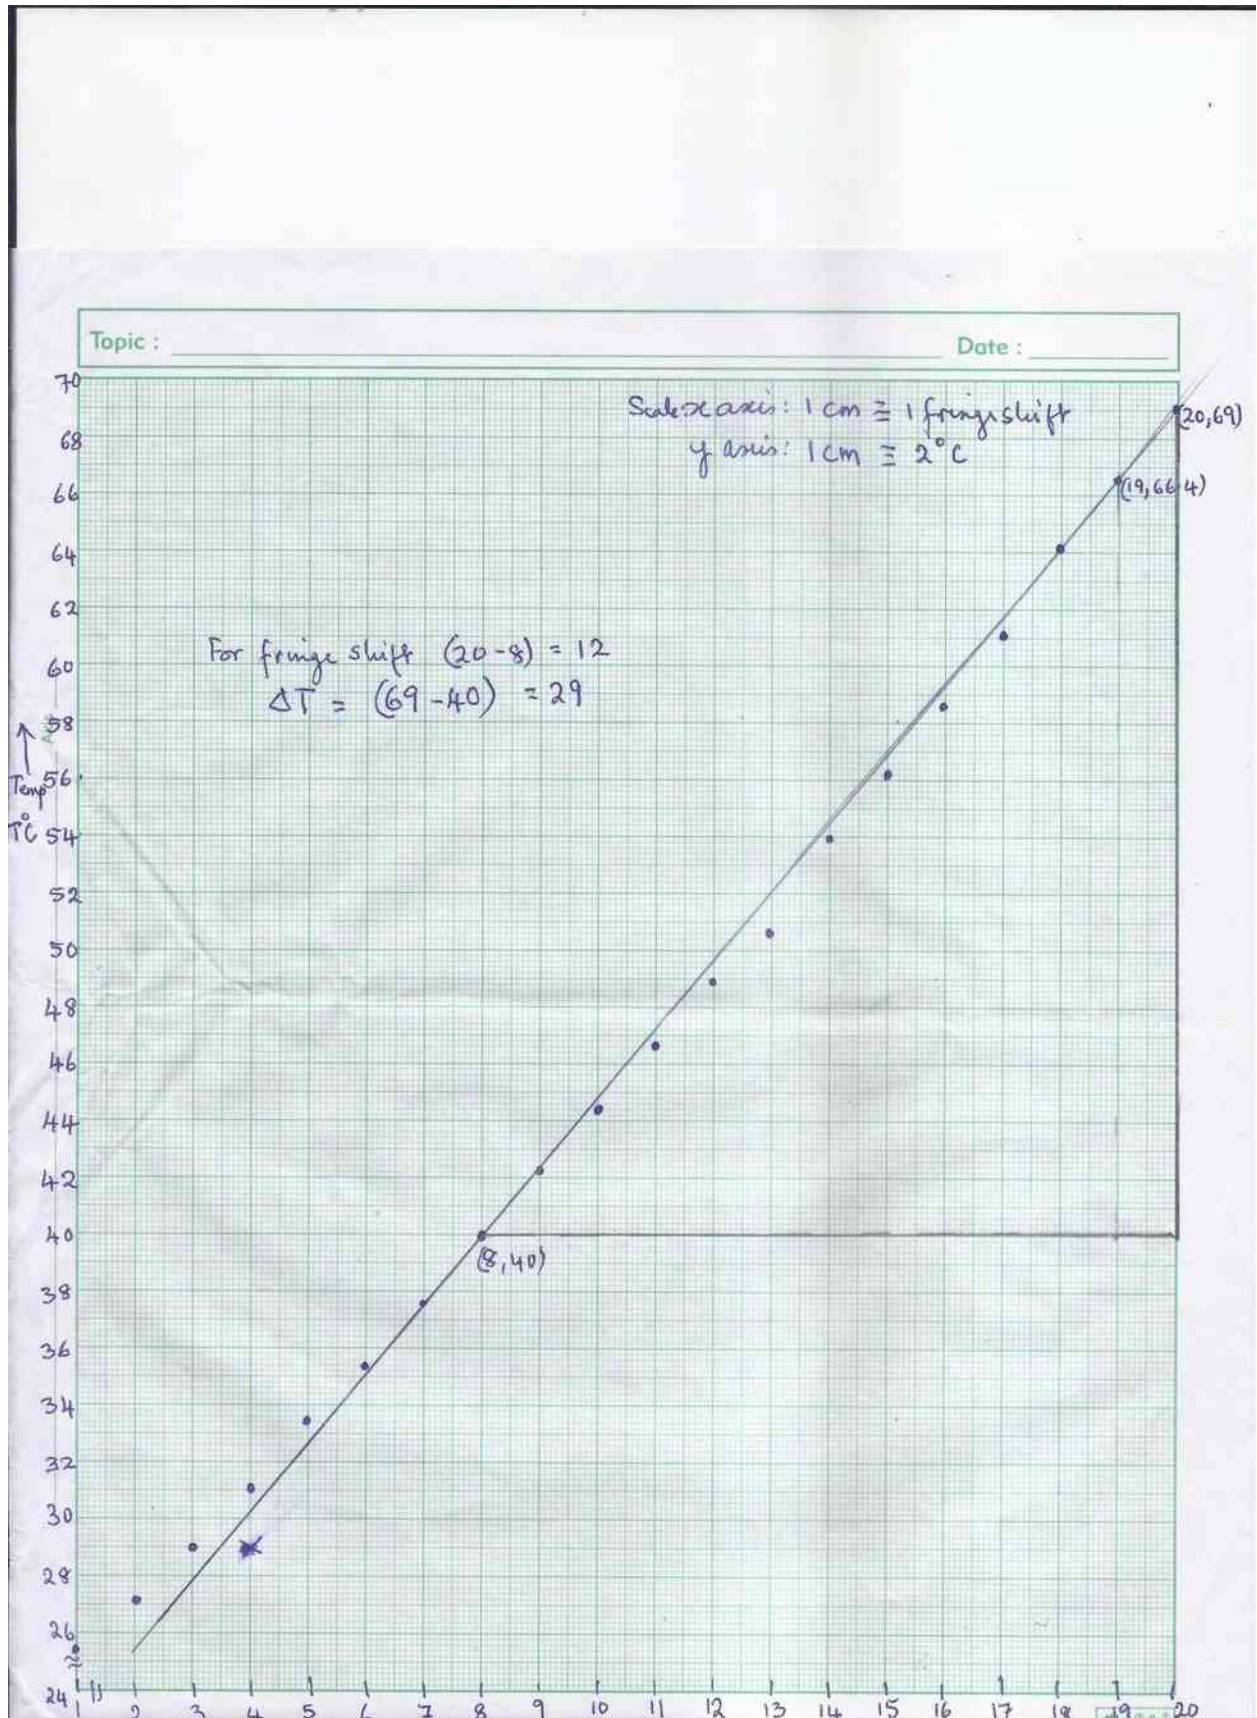 Topic :
Date :
Scale x axis: 1 cm ≡ 1 fringe shift
y axis: 1 cm ≡ 2°C
(20,69)
(19,66.4)
For fringe shift (20-8) = 12
ΔT = (69-40) = 29
(8,40)
↑
Temp
T°C
70
68
66
64
62
60
58
56
54
52
50
48
46
44
42
40
38
36
34
32
30
28
26
24
1 2 3 4 5 6 7 8 9 10 11 12 13 14 15 16 17 18 19 20